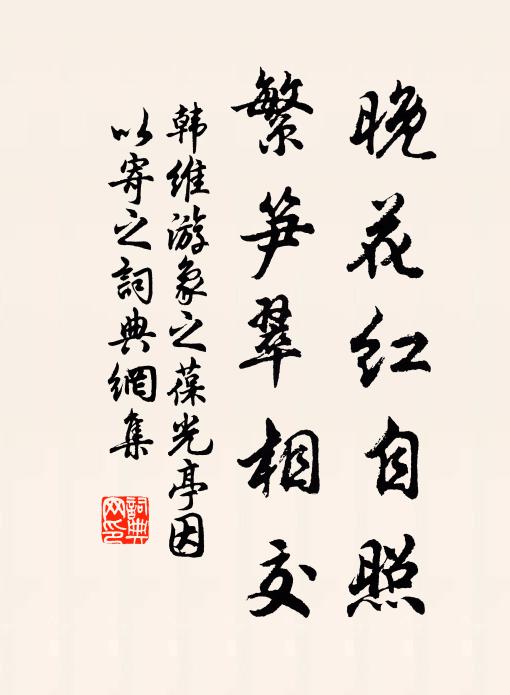 晚花红自照
繁笋翠相交
韩维游象之葆光亭因
以寄之词典網集
詞典网印